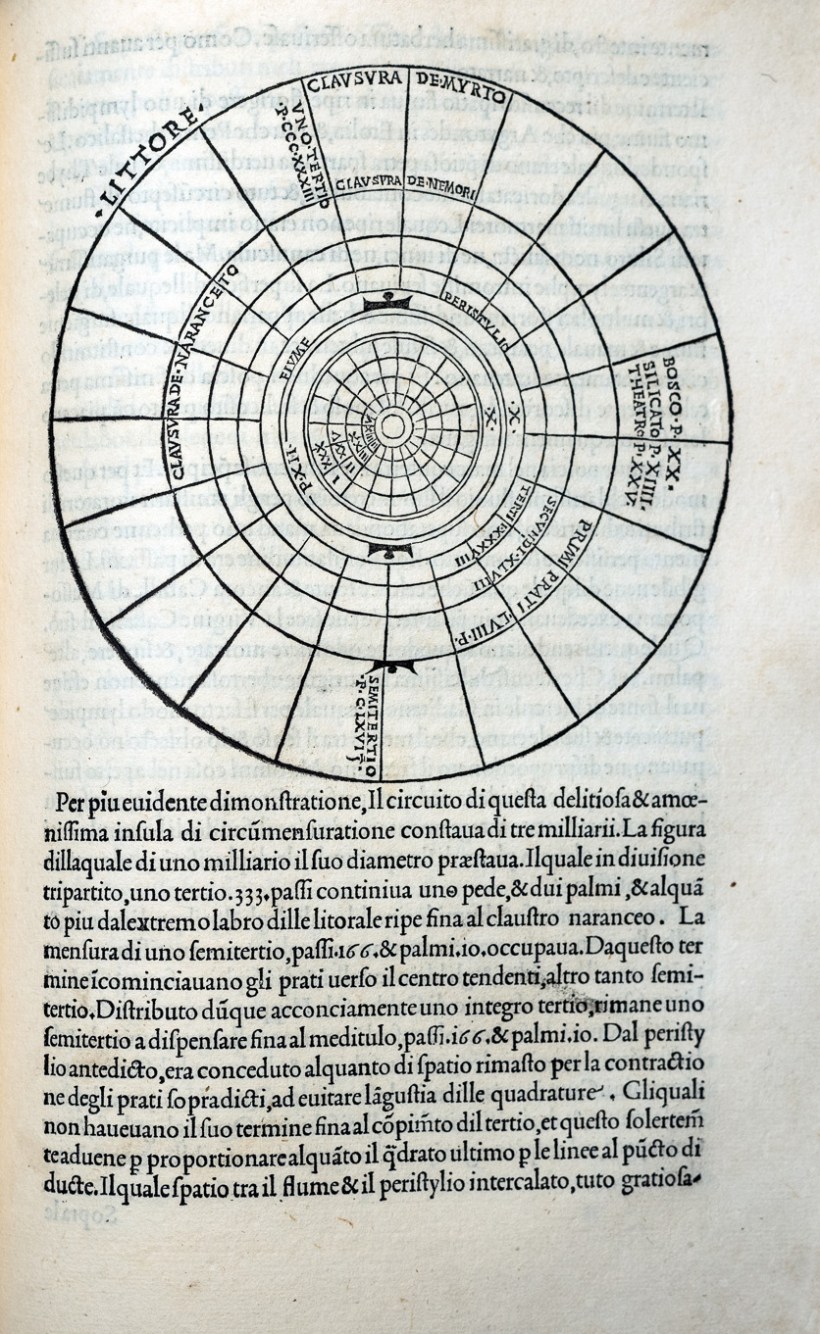 CLAVSVRA DE·MYRTO
·LITTORE·
VNO·TERTIO
·P·CCC·XXXIII
CLAVSVRA DE·NEMORI
CLAVSVRA·DE·NARANCETO
PERISTVLIO
FIVME
·X·
·X·
P·XII·
BOSCO·P·XX·
SILICATO P·XIIII·
THEATRO P·XXV·
PRIMI PRATI ·LVIII·P·
SECVNDI·XLVIII
TERTII·XXXVIII
SEMITERTIO
·P·C·LXVI
Per piu euidente dimonſtratione,Il circuito di queſta delitioſa & amœ-
niſſima inſula di circũmenſuratione conſtaua di tre milliarii.La figura
dillaquale di uno milliario il ſuo diametro præſtaua.Ilquale in diuiſione
tripartito,uno tertio.333.paſſi continiua uno pede,& dui palmi ,& alquã
to piu dalextremo labro dille litorale ripe fina al clauſtro naranceo. La
menſura di uno ſemitertio,paſſi.166.& palmi.10.occupaua.Daqueſto ter
mine ĩcominciauano gli prati uerſo il centro tendenti,altro tanto ſemi-
tertio.Diſtributo dũque acconciamente uno integro tertio,rimane uno
ſemitertio a diſpenſare fina al meditulo,paſſi.166.& palmi.10. Dal periſty
lio antedicto,era conceduto alquanto di ſpatio rimaſto per la contractio
ne degli prati ſopradicti,ad euitare lãguſtia dille quadrature. Gliquali
non haueuano il ſuo termine fina al cõpimẽto dil tertio,et queſto ſolertem̃
te aduene ꝑ proportionare alquãto il q̃drato ultimo ꝑ le linee al pũcto di
ducte.Ilquale ſpatio tra il flume & il periſtylio intercalato,tuto gratioſa-